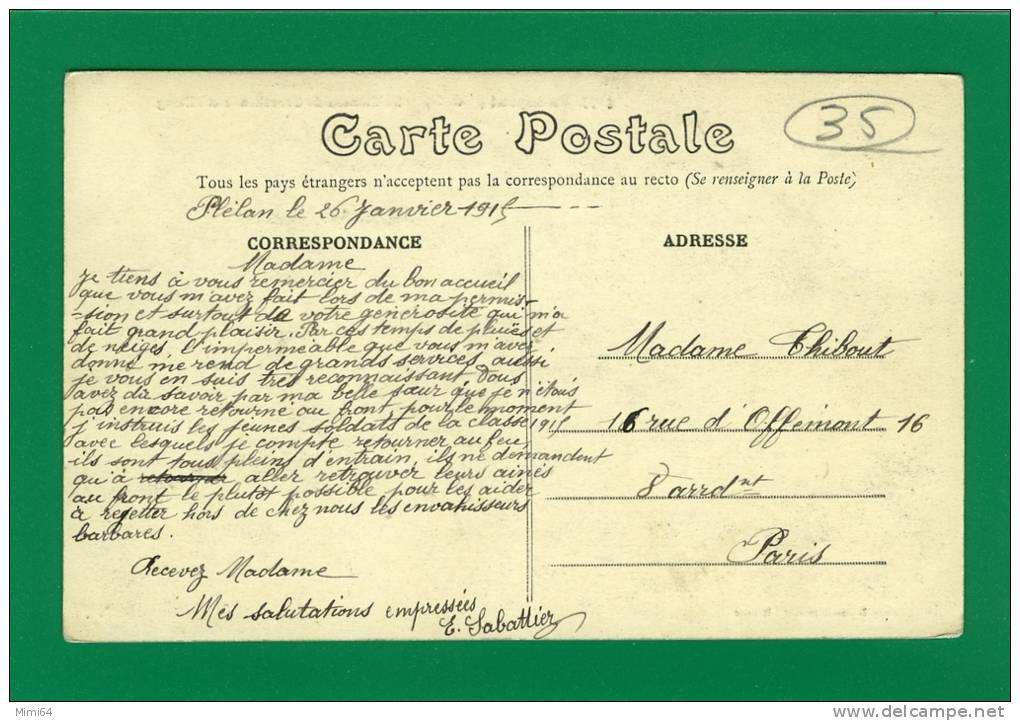 35
Carte Postale
Tous les pays étrangers n'acceptent pas la correspondance au recto (Se renseigner à la Poste)
Plélan le 26 Janvier 1915
CORRESPONDANCE
Madame
Je tiens à vous remercier du bon accueil
que vous m'avez fait lors de ma permis-
-sion et surtout de votre générosité qui m'a
fait grand plaisir. Par ces temps de pluies et
de neiges, l'imperméable que vous m'avez
donné me rend de grands services, aussi
je vous en suis très reconnaissant. Vous
avez dû savoir par ma belle sœur que je n'étais
pas encore retourné au front, pour le moment
j'instruis les jeunes soldats de la classe 1915
avec lesquels je compte retourner au feu,
ils sont tous pleins d'entrain, ils ne demandent
qu'à retourner aller retrouver leurs ainés
au front le plutôt possible pour les aider
à rejetter hors de chez nous les envahisseurs
barbares.
Recevez Madame
Mes salutations empressées
E. Sabattier
ADRESSE
Madame Thibout
16 rue d'Offémont 16
8 arrdnt
Paris
Mimi64
www.delcampe.net